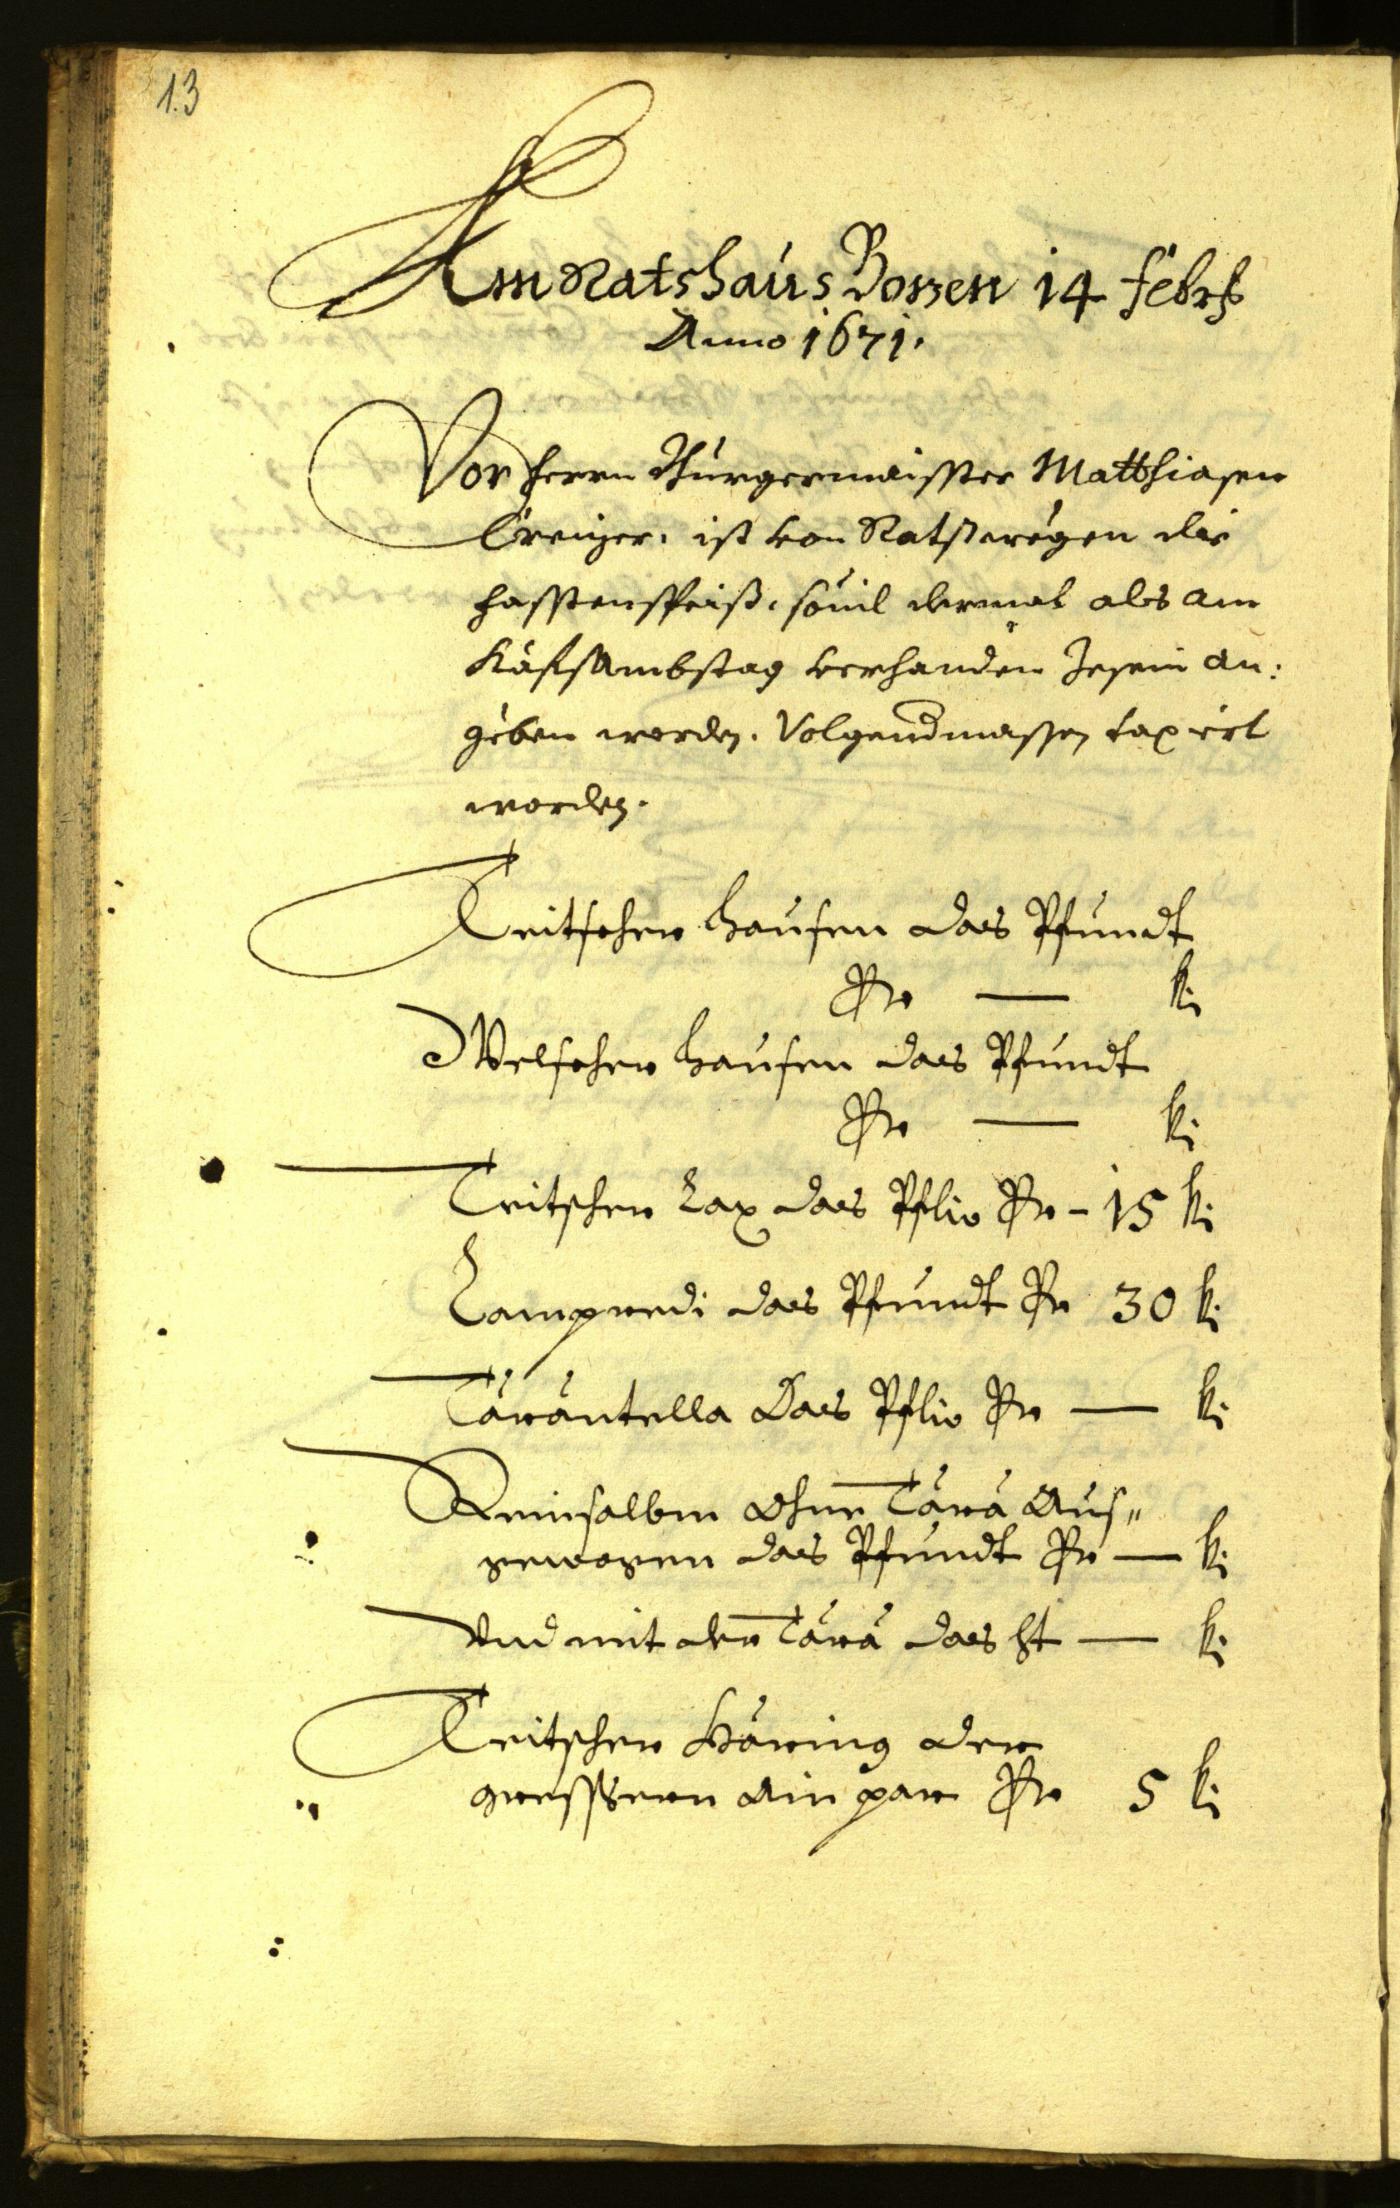 13
Am Ratshaus Bozen 14 Febr:
Anno 1671.
Vor herrn Burgermaister Matthiasen
ist von Ratswegen die
fasstenspeiß, souil dermal als am
Käßsambstag verhanden Zesein an:
geben worden. Volgendmassen taxiert
worden.
Teitschen Hausen das Pfundt
Pr — kr
Welschen Hausen das Pfundt
Pr — kr
Teitschen Lax das Pr - 15 kr
Lampredi das Pfundt Pr 30 kr
Tarantella das Pr — kr
Reinsalbm Ohne Tara Aus„
gewogen das Pfundt Pr — kr
Und mit der Tara das — kr
Teitschen Häring der
gressern ain par Pr 5 kr